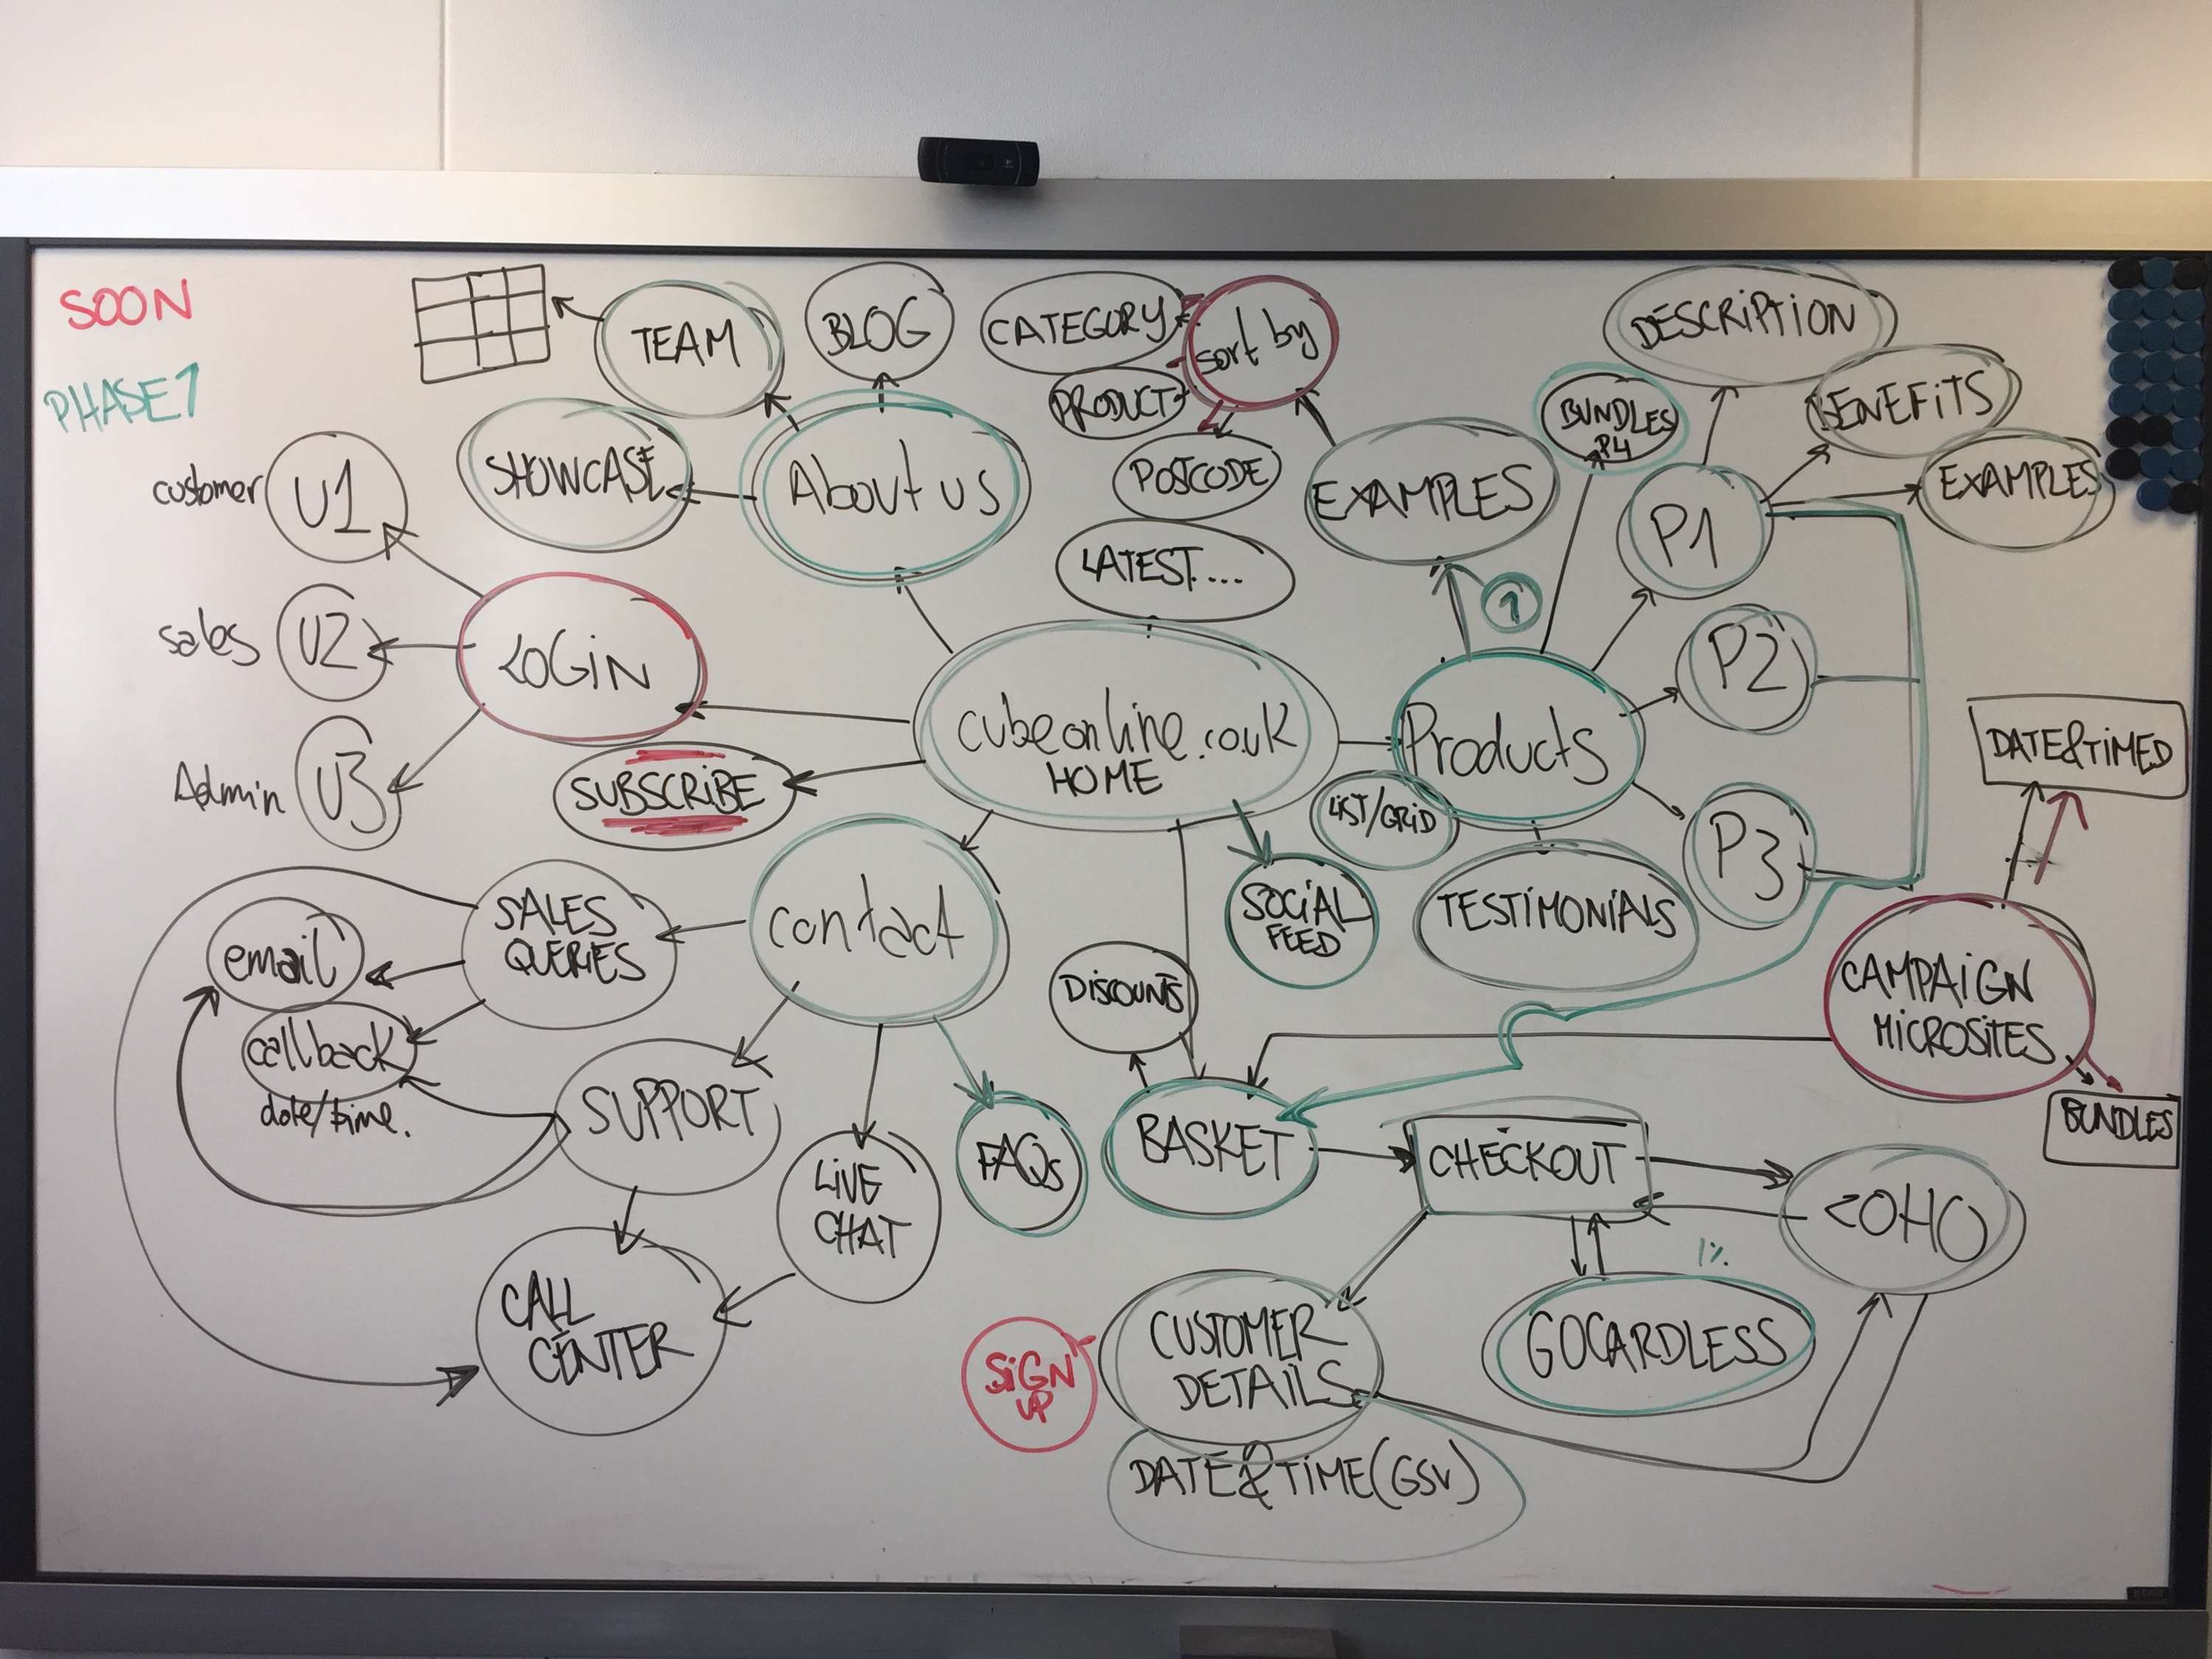 SOON
PHASE 1
TEAM
BLOG
CATEGORY
sort by
PRODUCT
POSTCODE
DESCRiPTiON
BUNDLES
P4
BENEFiTS
EXAMPLES
SHOWCASE
About us
EXAMPLES
P1
customer
U1
LATEST....
1
sales
U2
LOGiN
P2
cubeonline.co.uk
HOME
Products
DATE&TiMED
Admin
U3
SUBSCRiBE
LiST/GRiD
P3
SALES
QUERiES
contact
SOCiAL
FEED
TESTiMONiALS
email
DiSCOUNTS
CAMPAiGN
MiCROSiTES
callback
date/time.
SUPPORT
FAQs
BASKET
CHECKOUT
BUNDLES
LiVE
CHAT
ZOHO
1%
CALL
CENTER
SiGN
UP
CUSTOMER
DETAiLS
GOCARDLESS
DATE&TiME(GSV)